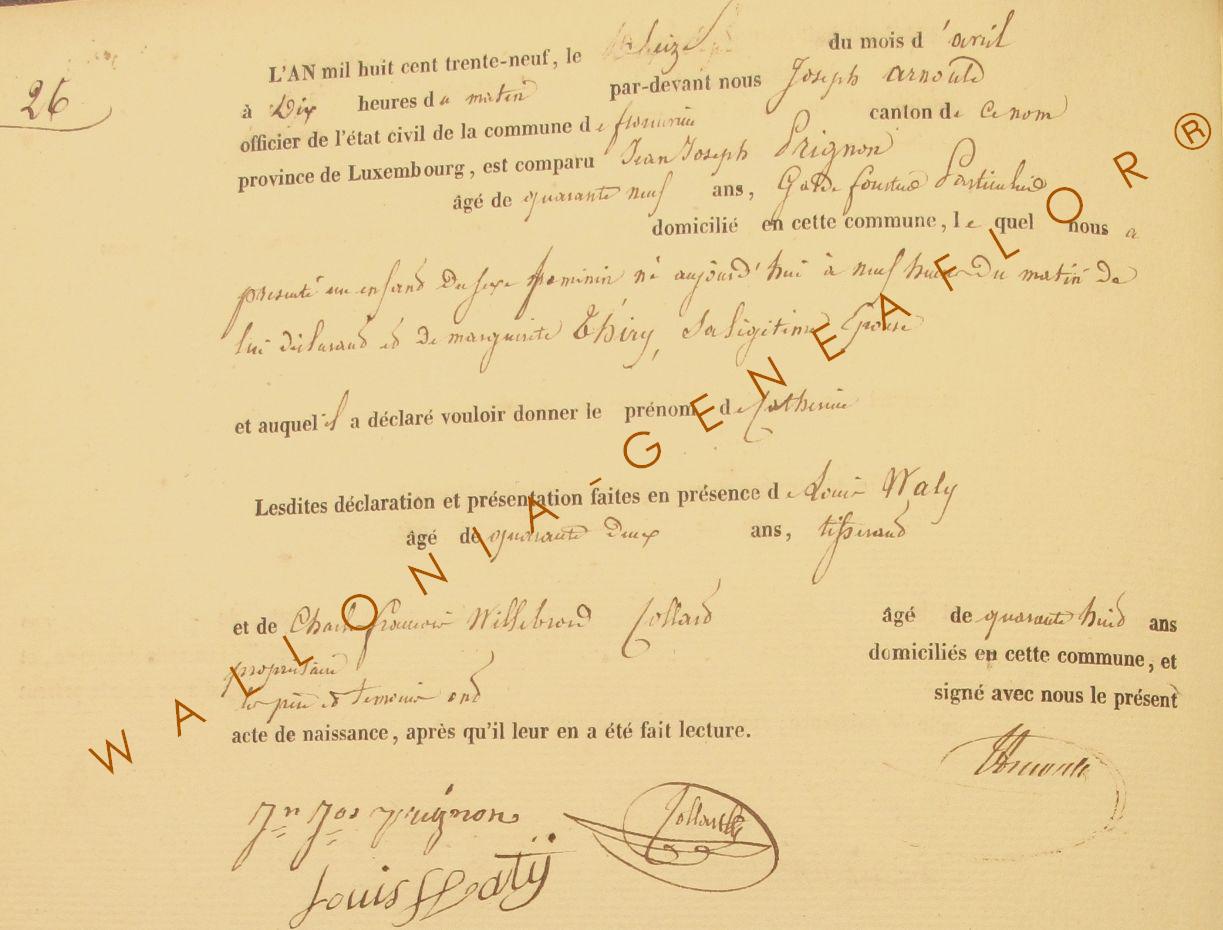 26
L'AN mil huit cent trente-neuf, le du mois d'avril
à Dix heures du matin par-devant nous Joseph arnould
officier de l'état civil de la commune de florenville canton de ce nom
province de Luxembourg, est comparu Jean Joseph Prignon
âgé de quarante neuf ans, Garde forestier Particulier
domicilié en cette commune, lequel nous a
présenté un enfant du sexe feminin né aujourd'hui à neuf heures du matin de
lui déclarant et de marguerite Thiry, sa légitime Epouse
et auquel il a déclaré vouloir donner le prénom de Catherine
Lesdites déclaration et présentation faites en présence de Louis Waty
âgé de quarante deux ans, tisserand
et de Charles françois Willebrord Collard âgé de quarante huit ans
propriétaire domiciliés en cette commune, et
les père et temoins ont signé avec nous le présent
acte de naissance, après qu'il leur en a été fait lecture.
Jn Jos prignon
Collard
Louis Watÿ
WALLONIA-GENEAFLOR®